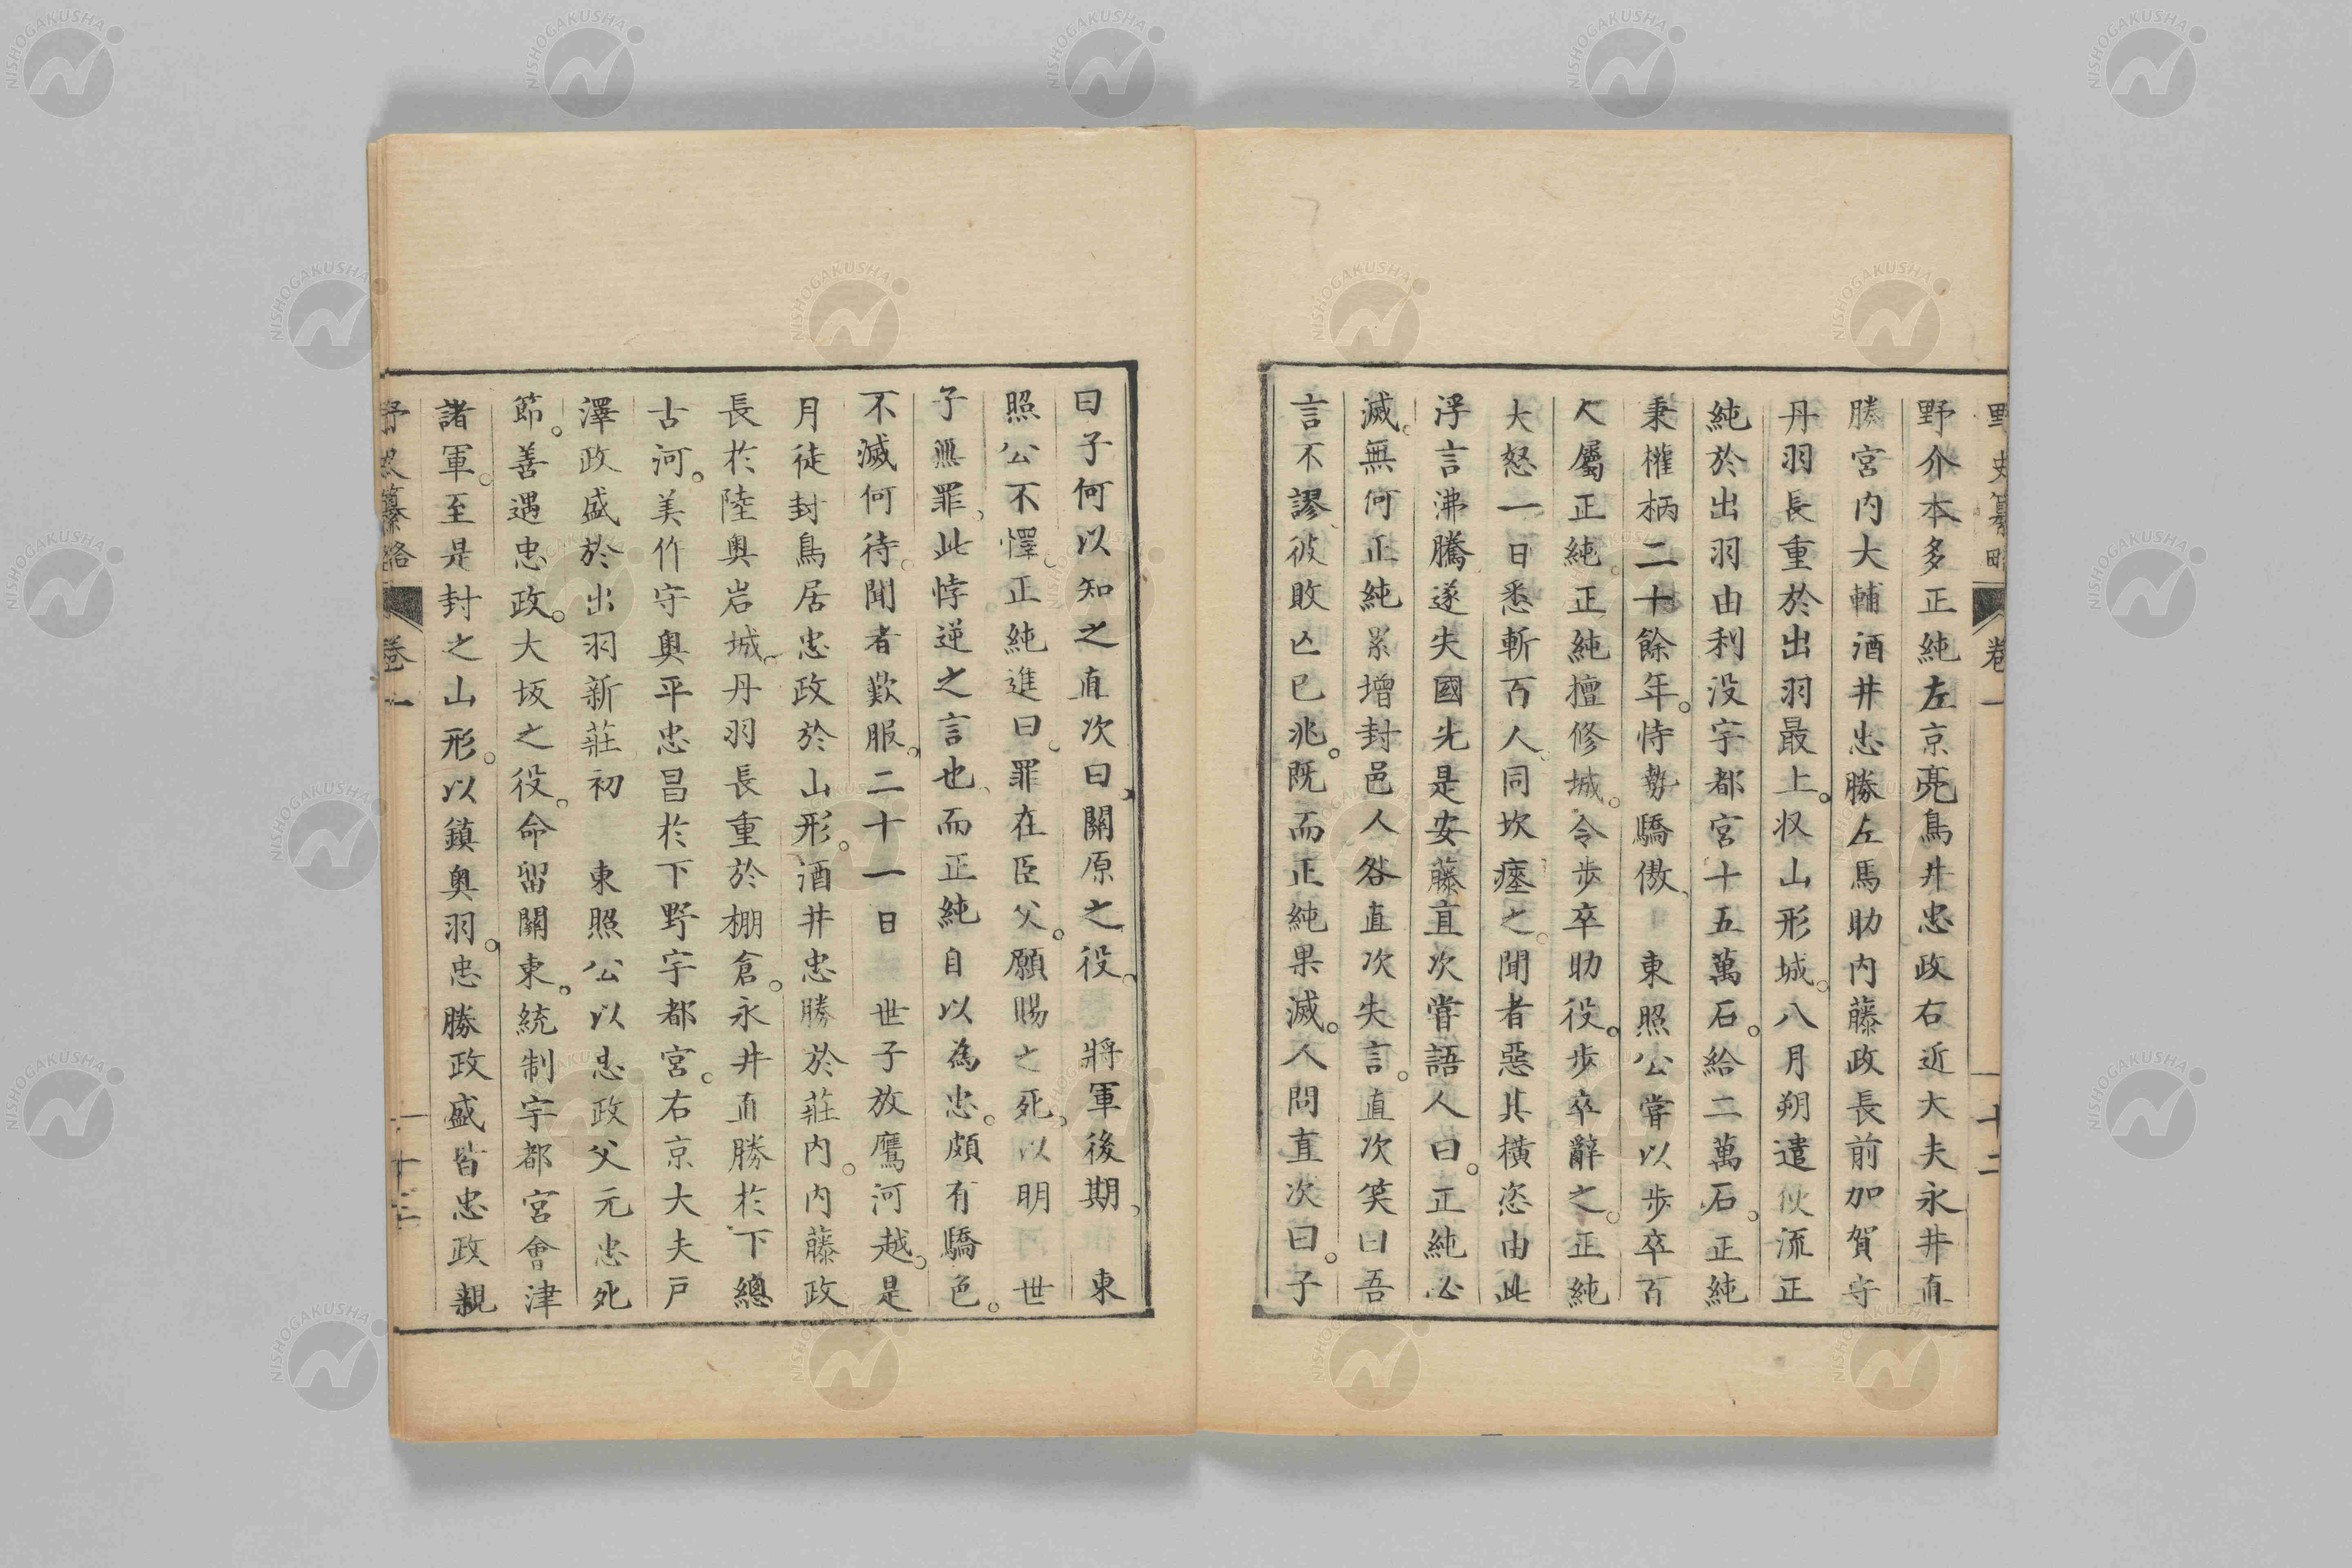 野史纂略 卷一 十二
野介本多正純左京亮鳥井忠政右近大夫永井直
勝宮内大輔酒井忠勝左馬助内藤政長前加賀守
丹羽長重於出羽最上。収山形城。八月朔遣使流正
純於出羽由利没宇都宮十五萬石。給二萬石。正純
秉權柄二十餘年。恃勢驕傲、　東照公嘗以歩卒百
人屬正純。正純擅修城。令歩卒助役。歩卒辭之。正純
大怒一日悉斬百人、同坎瘞之。聞者惡其橫恣由此
浮言沸騰、遂失國先是安藤直次嘗語人曰。正純必
滅。無何正純累增封邑人咎直次失言。直次笑曰吾
言不謬彼敗亡已兆。既而正純果滅。人問直次曰。子
曰子何以知之直次曰、關原之役、　將軍後期、　東
照公不懌。正純進曰。罪在臣父。願賜之死。以明　世
子無罪。此悖逆之言也、而正純自以為忠。頗有驕色。
不滅何待。聞者歎服。二十一日　世子放鷹河越。是
月徒封鳥居忠政於山形。酒井忠勝於莊内。内藤政
長於陸奥岩城、丹羽長重於棚倉。永井直勝於下總
古河。美作守奥平忠昌於下野宇都宮。右京大夫戸
澤政盛於出羽新莊初　東照公以忠政父元忠死
節。善遇忠政。大坂之役。命留關東。統制宇都宮會津
諸軍。至是封之山形。以鎮奥羽。忠勝政盛皆忠政親
野史纂略 卷一 十三
NISHOGAKUSHA